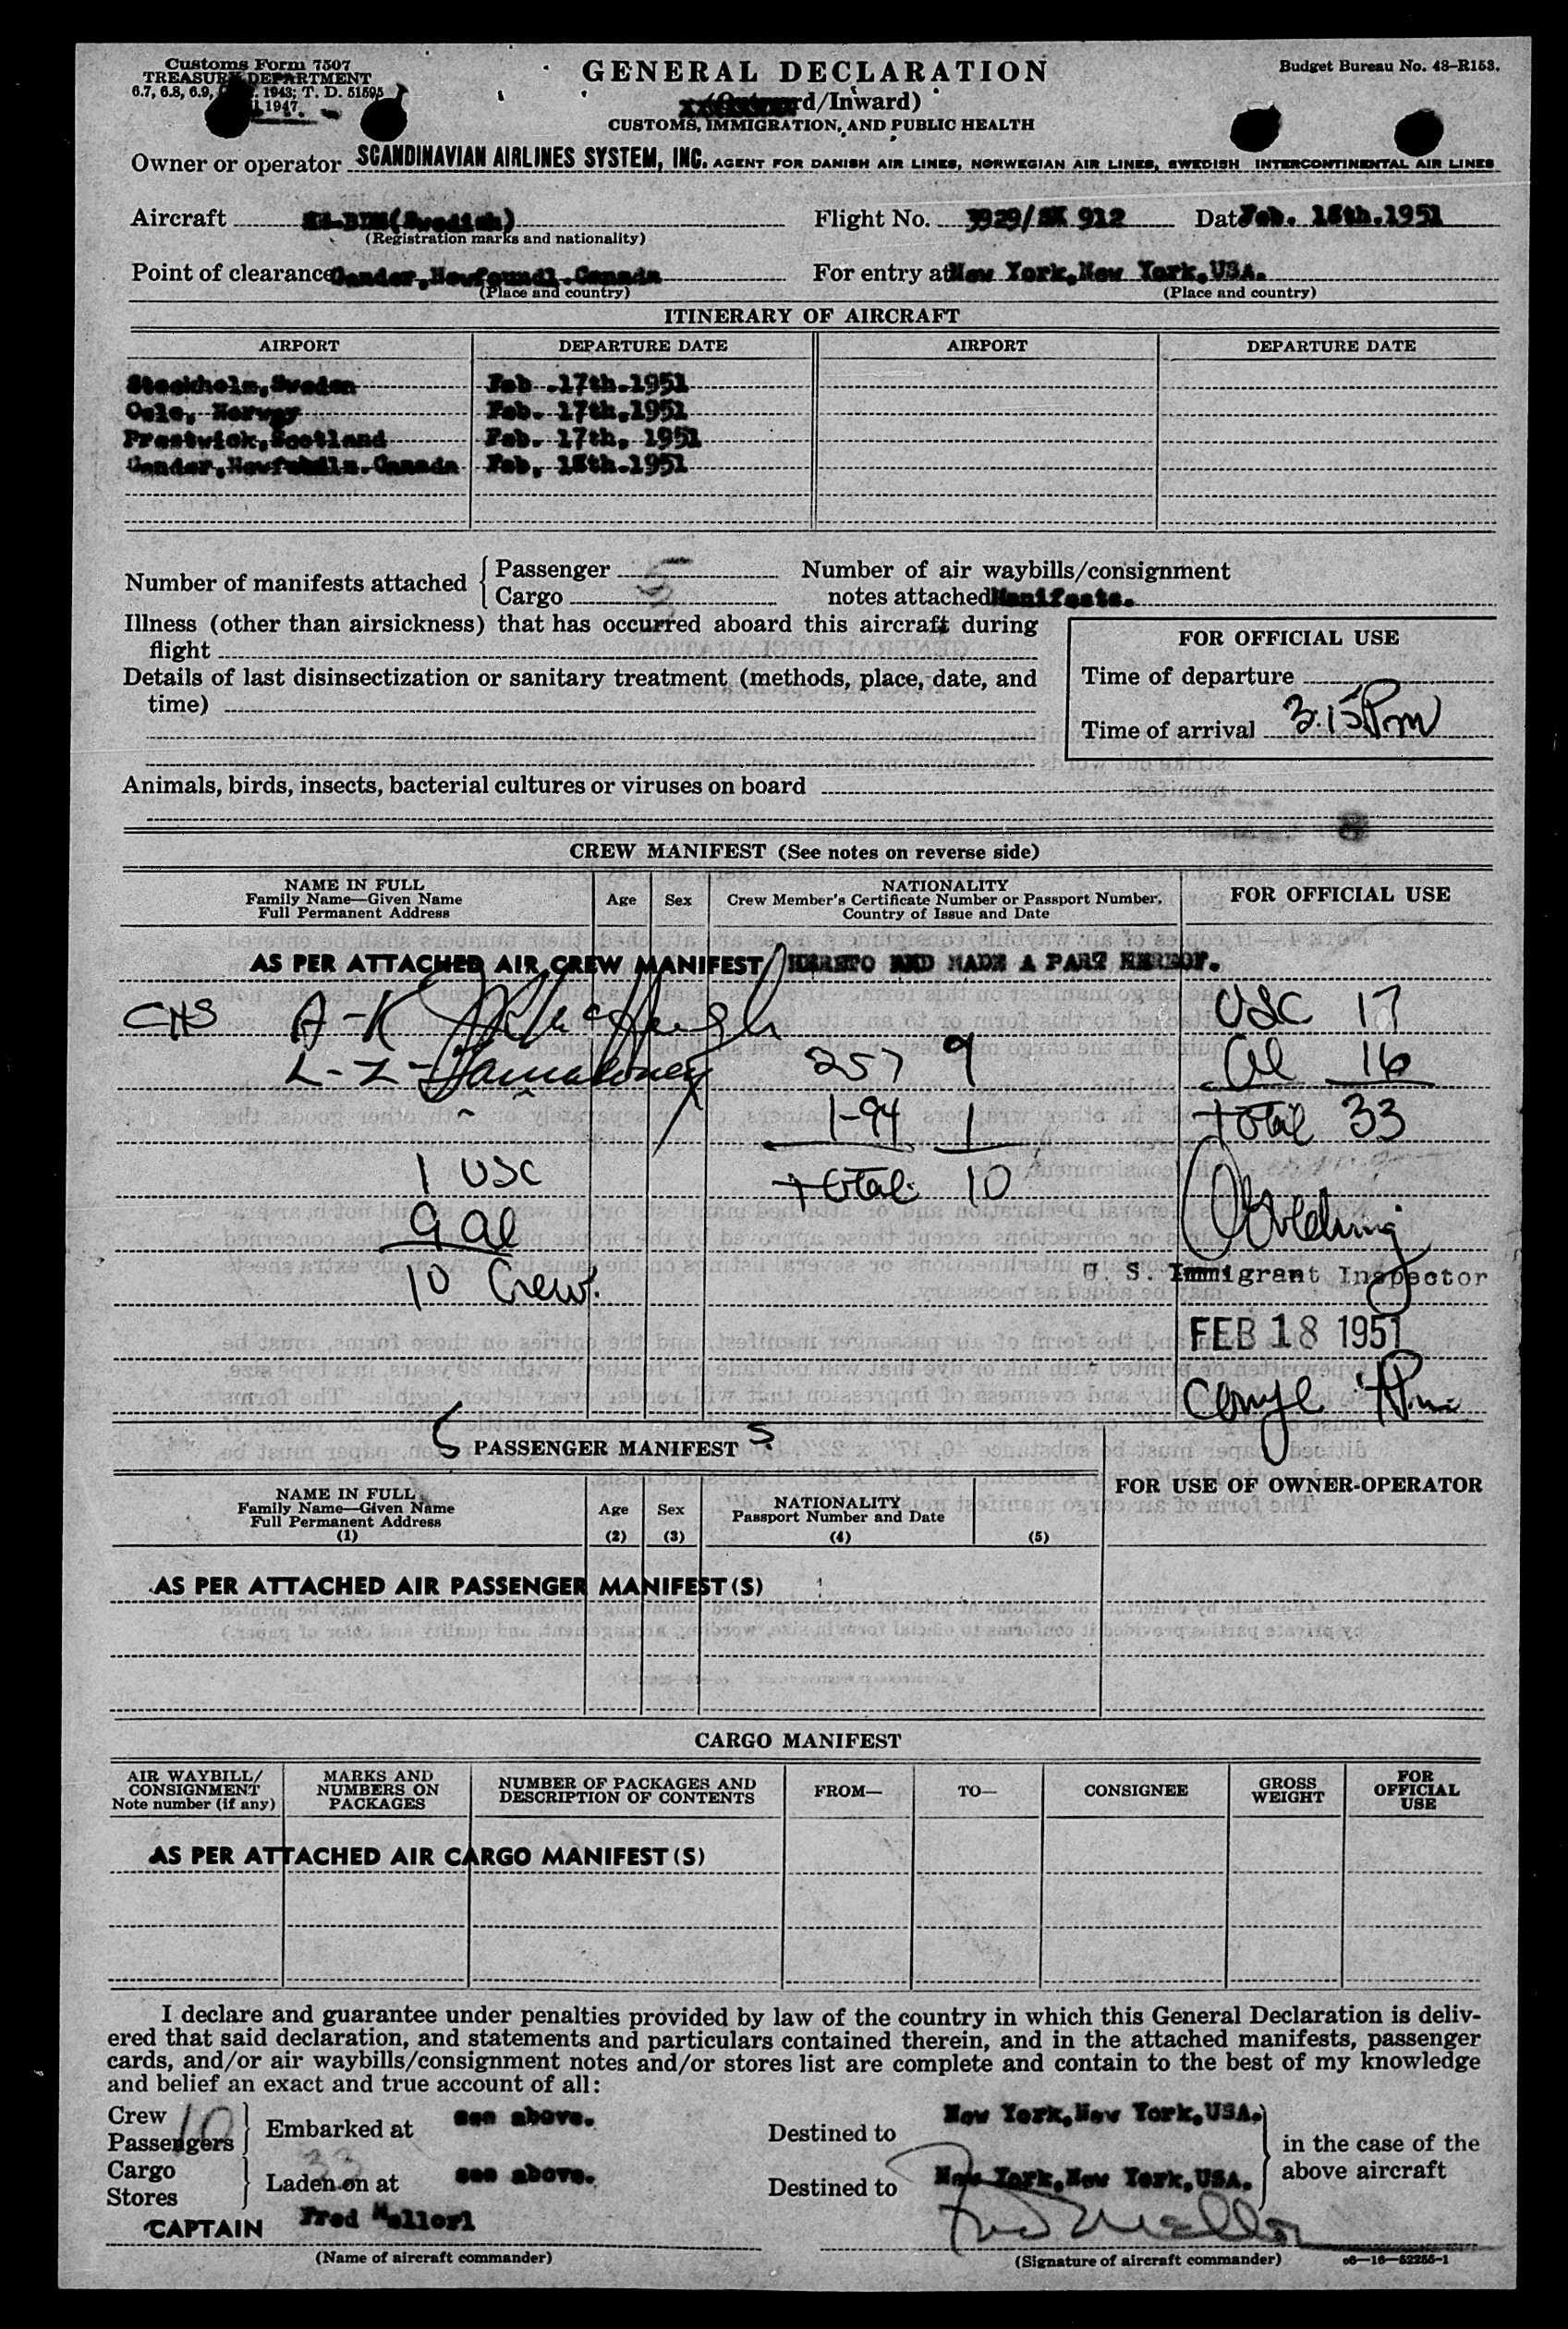 Customs Form 7507
TREASURY DEPARTMENT
6.7, 6.8, 6.9, 1943; T. D. 51595
1947.
GENERAL DECLARATION
d/Inward)
CUSTOMS, IMMIGRATION, AND PUBLIC HEALTH
Budget Bureau No. 48–R153.
Owner or operator SCANDINAVIAN AIRLINES SYSTEM, INC. AGENT FOR DANISH AIR LINES, NORWEGIAN AIR LINES, SWEDISH INTERCONTINENTAL AIR LINES
Aircraft (Swedish) Flight No. 3929/SK 912 Dat Feb. 18th.1951
(Registration marks and nationality)
Point of clearance Gander,Newfoundl.Canada For entry at New York,New York,USA.
(Place and country) (Place and country)
ITINERARY OF AIRCRAFT
AIRPORT DEPARTURE DATE AIRPORT DEPARTURE DATE
Stockholm,Sweden Feb .17th.1951
Oslo, Norway Feb. 17th,1951
Prestwick,Scotland Feb. 17th, 1951
Gander, Canada Feb, 18th.1951
Number of manifests attached Passenger 5 Number of air waybills/consignment
Cargo notes attached Manifests.
Illness (other than airsickness) that has occurred aboard this aircraft during
flight
FOR OFFICIAL USE
Details of last disinsectization or sanitary treatment (methods, place, date, and
time)
Time of departure
Time of arrival 3.15 Pm
Animals, birds, insects, bacterial cultures or viruses on board
CREW MANIFEST (See notes on reverse side)
NAME IN FULL
Family Name—Given Name
Full Permanent Address
Age Sex
NATIONALITY
Crew Member's Certificate Number or Passport Number,
Country of Issue and Date
FOR OFFICIAL USE
AS PER ATTACHED AIR CREW MANIFEST HERETO AND MADE A PART HEREOF.
A-K USC 17
L-Z- 257 9 al 16
1-94 1 total 33
1 USC total 10
9 al
10 Crew.
U. S. Immigrant Inspector
FEB 18 1951
5 PASSENGER MANIFEST S
NAME IN FULL
Family Name—Given Name
Full Permanent Address
(1)
Age
(2)
Sex
(3)
NATIONALITY
Passport Number and Date
(4) (5)
FOR USE OF OWNER-OPERATOR
AS PER ATTACHED AIR PASSENGER MANIFEST(S)
CARGO MANIFEST
AIR WAYBILL/
CONSIGNMENT
Note number (if any)
MARKS AND
NUMBERS ON
PACKAGES
NUMBER OF PACKAGES AND
DESCRIPTION OF CONTENTS
FROM— TO— CONSIGNEE
GROSS
WEIGHT
FOR
OFFICIAL
USE
AS PER ATTACHED AIR CARGO MANIFEST(S)
I declare and guarantee under penalties provided by law of the country in which this General Declaration is deliv-
ered that said declaration, and statements and particulars contained therein, and in the attached manifests, passenger
cards, and/or air waybills/consignment notes and/or stores list are complete and contain to the best of my knowledge
and belief an exact and true account of all:
Crew 10
Passengers 33
Embarked at see above.
Destined to New York,New York,USA.
in the case of the
above aircraft
Cargo
Stores
Laden on at see above.
Destined to New York,New York,USA.
CAPTAIN Fred
(Name of aircraft commander) (Signature of aircraft commander) c6—16—52255-1